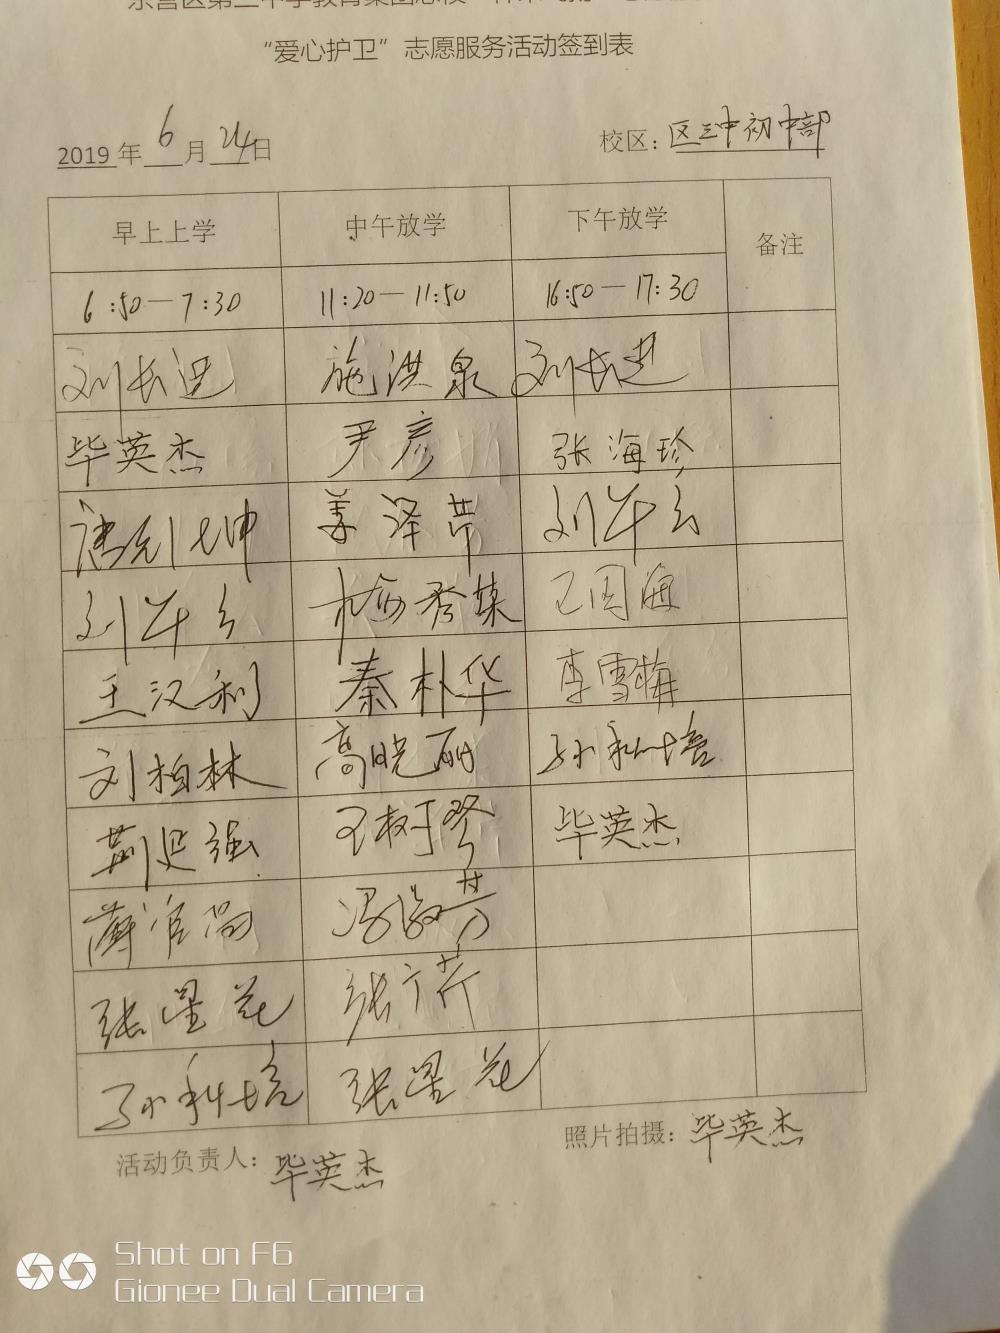 “爱心护卫”志愿服务活动签到表
2019年 6 月 24 日 校区：区三中初中部
早上上学 中午放学 下午放学 备注
6:50—7:30 11:20—11:50 16:50—17:30
刘长进 施洪泉 刘长进
毕英杰 尹彦 张海珍
姜泽芹 刘华云
刘华云 杨秀菊 王国海
王汉利 秦朴华 李雪梅
刘柏林 高晓丽 孙科培
荆廷强 王树琴 毕英杰
冯淑芳
张星花 张广芹
孙科培 张星花
活动负责人：毕英杰 照片拍摄：毕英杰
Shot on F6
Gionee Dual Camera